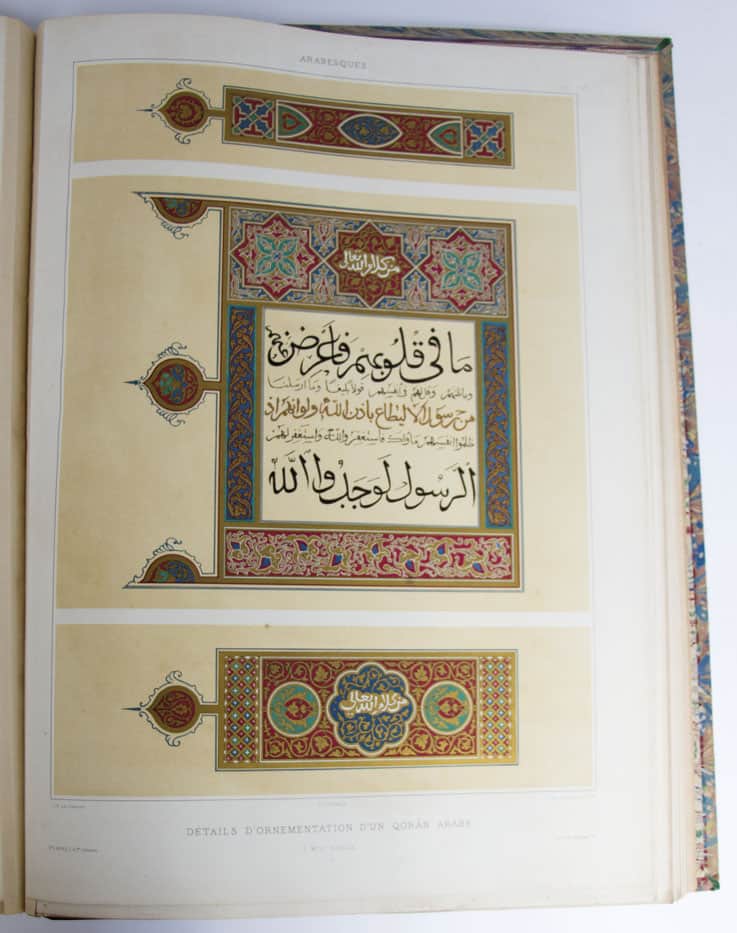 ARABESQUES
من كلام الله تعالى
ما فى قلوبهم فاعرض
وقل لهم فى انفسهم قولا بليغا وما ارسلنا
من رسول الا ليطاع باذن الله ولو انهم اذ
ظلموا انفسهم جاؤك فاستغفروا الله واستغفر لهم
الرسول لوجدوا الله
من كلام الله تعالى
DÉTAILS D'ORNEMENTATION D'UN QORÂN ARABE
SIÈCLE